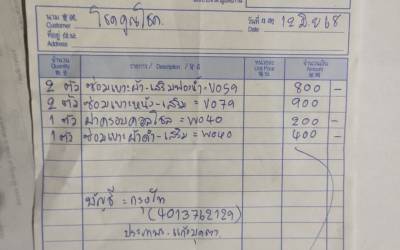 นาม 宝號 Customer โชคคูณโชค. วันที่ 日期 Date 12 มิ.ย 68
ที่อยู่ 住址 Address
จำนวน Quantity รายการ / Description / 貨名 หน่วยละ Unit Price จำนวนเงิน Amount
2 ตัว ซ่อมเบาะผ้า-เสริมฟองน้ำ-V059 800 -
2 ตัว ซ่อมเบาะหนัง-เสริม = V079 900
1 ตัว ฝาครอบคอนโซล = W040 200 -
1 ตัว ซ่อมเบาะผ้าดำ-เสริม = W040 400 -
บัญชี = กรุงไทย
(4013762129)